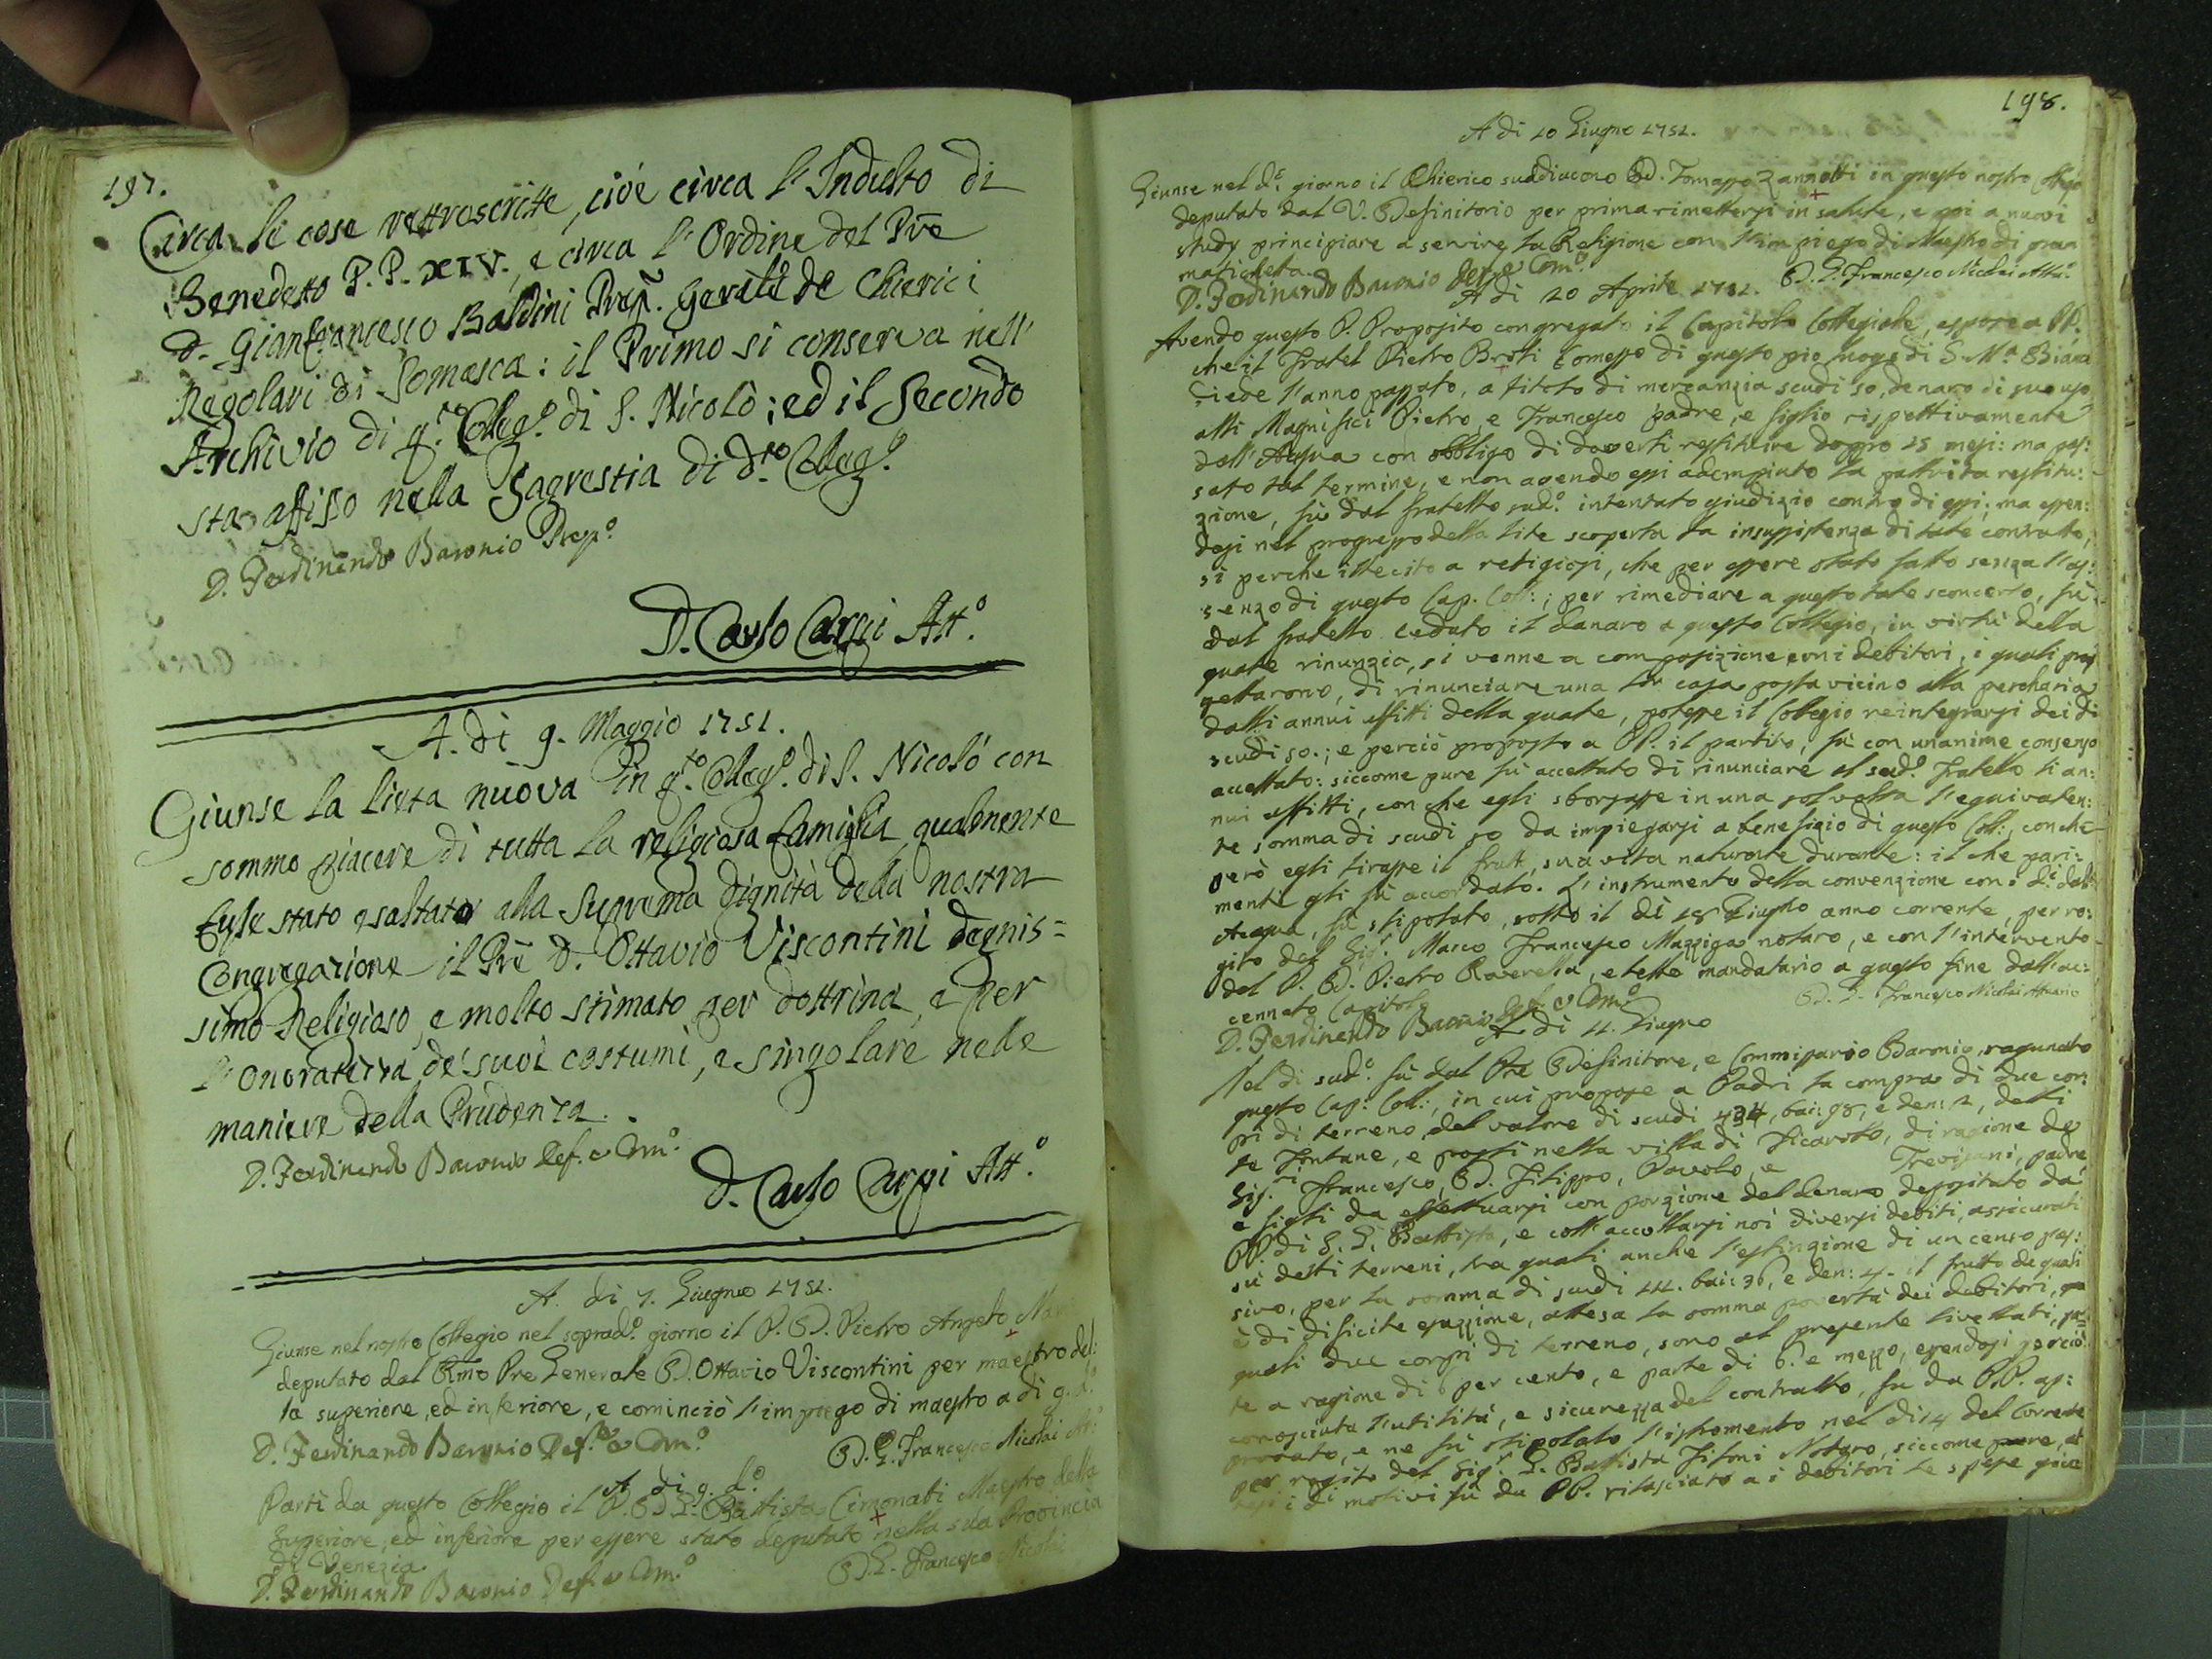 197.
Circa le cose retroscritte, cioè circa l'Indulto di
Benedetto P.P. XIV., e circa l'Ordine del Prē
D. Gianfrancesco Baldini Prep. Gerāle de Chierici
Regolari di Somasca: il Primo si conserva nell'
Archivio di q.to Colleg.o di S. Nicolò; ed il Secondo
sta affisso nella Sagrestia di d.to Colleg.o
D. Ferdinando Baronio Prep.o
D. Carlo Carpi Att.o
A. di 9. Maggio 1751.
Giunse la lieta nuova in q.to Colleg.o di S. Nicolò con
sommo piacere di tutta la religiosa famiglia, qualmente
fusse stato esaltato alla Suprema dignità della nostra
Congregazione il Prē D. Ottavio Viscontini degnis=
simo Religioso, e molto stimato per dottrina, e per
l'onoratezza de' suoi costumi, e singolare nelle
maniere della Prudenza.
D. Ferdinando Baronio Def. e Com.o
D. Carlo Carpi Att.o
A. di 7. Giugno 1751.
Giunse nel nostro Collegio nel soprad.o giorno il P. D. Pietro Angelo
deputato dal Rmo Pre Generale D. Ottavio Viscontini per maestro del:
la superiore, ed inferiore, e cominciò l'impiego di maestro a di 9. d.o
D. Ferdinando Baronio Def.e e Com.o D. G. Francesco Nicolai Att.o
A di 9. d.o
Partì da questo Collegio il P. D. G. Battista Cimonati Maestro della
Superiore, ed inferiore per essere stato deputato nella sua Provincia
di Venezia.
D. Ferdinando Baronio Def. e Com.o D. G. Francesco Nicolai
198.
A di 10 Giugno 1751.
Giunse nel d.o giorno il Chierico suddiacono D. Tomasso Zannotti in questo nostro Collegio
deputato dal V. Definitorio per prima rimettersi in salute, e poi a nuovi
studj principiare a servire la Religione con l'impiego di Maestro di gram
matichetta.
D. Ferdinando Baronio Def. e Com.o D. G. Francesco Nicolai Att.o
A di 20 Aprile 1751.
Avendo questo P. Preposito congregato il Capitolo Collegiale, espose a PP.
che il Fratel Pietro Brosi comesso di questo pio luogo di S. M.a Bianca
diede l'anno passato, a titolo di mercanzia scudi 50, denaro di suo uso
alli Magnifici Pietro, e Francesco padre, e figlio rispettivamente
dall'Acqua con obbligo di doverli restituire doppo 15 mesi: ma pas:
sato tal termine, e non avendo essi adempiuto la pattuita restitu:
zione, fù dal fratello sud.o intentato giudizio contro di essi; ma essen:
dosi nel progresso della lite scoperta la insussistenza di tale contratto,
sì perche illecito a religiosi, che per essere stato fatto senza l'as:
senso di questo Cap. Coll:; per rimediare a questo tale sconcerto, fù
dal fratello ceduto il danaro a questo Collegio, in virtù della
quale rinunzia, si venne a composizione con i debitori, i quali pro
gettarono, di rinunciare una lor casa posta vicino alla percharia
dalli annui affitti della quale, potesse il Collegio reintegrarsi dei di
scudi 50.; e perciò proposto a PP. il partito, fù con unanime consenso
accettato: siccome pure fù accettato di rinunciare al sud.o Fratello li an:
nui affitti, con che egli sborsasse in una sol volta l'equivalen:
te somma di scudi 50 da impiegarsi a benefizio di questo Coll:, con che
però egli tirasse il frutt, sua vita naturale durante: il che pari:
menti gli fù accordato. L'instrumento della convenzione con i d.i dall'
Acqua, fù stipolato, sotto il dì 18 Giugno anno corrente, per ro:
gito del Sig.r Marco Francesco Mazziga notaro, e con l'intervento
del P. D. Pietro Roverella, eletto mandatario a questo fine dall'ac:
cennato Capitolo
D. Ferdinando Baronio Def. e Com.o D. G. Francesco Nicolai Attuario
A di 11. Giugno
Nel di sud.o fù dal Pre Definitore, e Commissario Baronio, ragunato
questo Cap: Coll:, in cui propose a Padri la compra di due cor:
pi di terreno, del valore di scudi 434, bai: 98, e den: 2, detti
le Fontane, e posti nella villa di Ficarolo, di ragione de
Sig.ri Francesco, D. Filippo, Pavolo, e Trevisani, padre
e figli da effettuarsi con porzione del denaro depositato da
PP. di S. G. Battista, e coll'accollarsi noi diversi debiti, assicurati
sù detti terreni, tra quali anche l'estinzione di un censo pas:
sivo, per la somma di scudi 111. bai: 36, e den: 4. il frutto de quali
è di dificile esazzione, attesa la somma povertà dei debitori,
quali due corpi di terreno, sono al presente livellati,
te a ragione di 6 per cento, e parte di 6. e mezzo, essendosi perciò
conosciuta l'utilità, e sicurezza del contratto, fu da PP. ap:
provato, e ne fù stipolato l'istromento nel dì 14 del corrente
per rogito del Sig.r G. Battista Fifoni Notaro, siccome pure,
i di motivi fù da PP. rilasciato a i debitori le spese